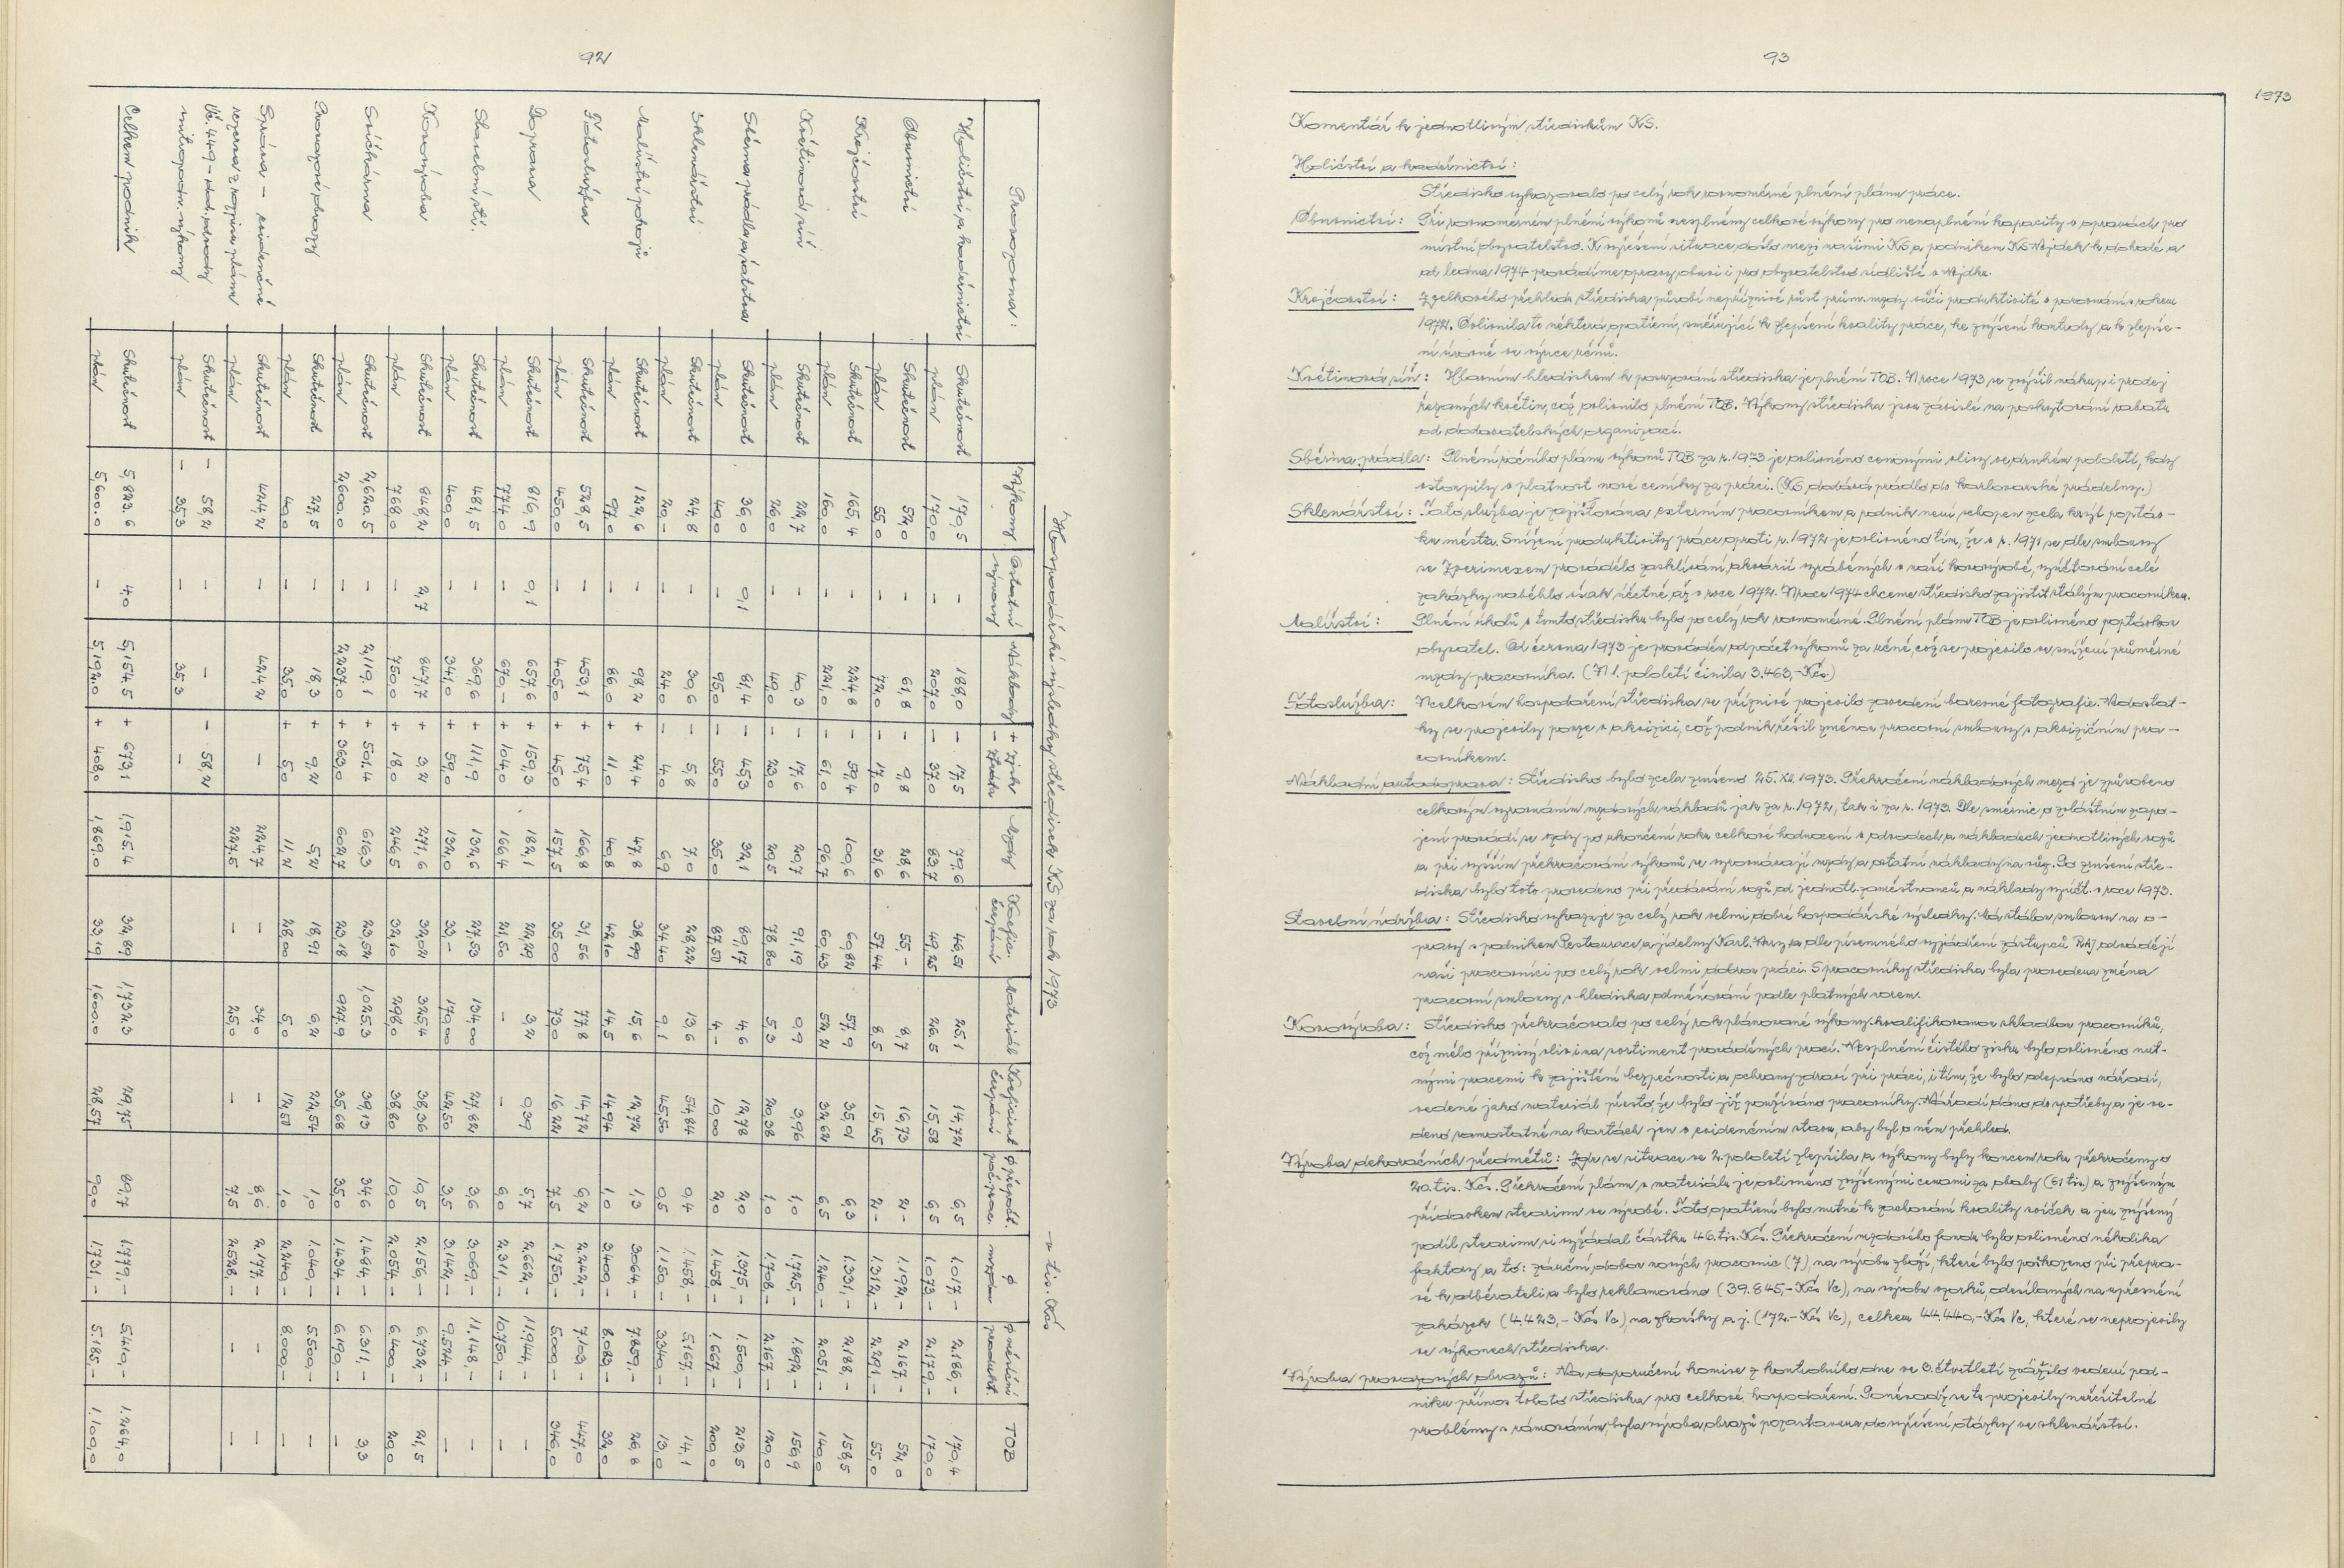 92
Hospodářské výsledky středisek KS za rok 1973
v tis. Kčs
Provozovna: Výkony Ostatní výnosy Náklady + zisk - ztráta Mzdy Koefic. čerpání Materiál Koeficient čerpání φ přepočt. poč. prac. φ mzda φ měsíční produkt. TOB
Holičství a kadeřnictví Skutečnost 170,5 - 188,0 - 17,5 79,6 46,51 25,1 14,72 6,5 1.017,- 2.186,- 170,4
plán 170,0 - 207,0 - 37,0 83,7 49,25 26,5 15,58 6,5 1.073,- 2.179,- 170,0
Obuvnictví Skutečnost 52,0 - 61,8 - 9,8 28,6 55,- 8,7 16,73 2,- 1.192,- 2.167,- 52,0
plán 55,0 - 72,0 - 17,0 31,6 57,44 8,5 15,45 2,- 1.312,- 2.291,- 55,0
Krejčovství Skutečnost 165,4 - 224,8 - 59,4 100,6 60,82 57,9 35,01 6,3 1.331,- 2.188,- 158,5
plán 160,0 - 221,0 - 61,0 96,7 60,43 52,2 32,62 6,5 1.240,- 2.051,- 140,0
Květinová síň Skutečnost 22,7 - 40,3 - 17,6 20,7 91,19 0,9 3,96 1,0 1.725,- 1.892,- 159,9
plán 26,0 - 49,0 - 23,0 20,5 78,80 5,3 20,38 1,0 1.708,- 2.167,- 120,0
Sběrna prádla a čistírna Skutečnost 36,0 0,1 81,4 - 45,3 32,1 89,17 4,6 12,78 2,0 1.375,- 1.500,- 213,5
plán 40,0 - 95,0 - 55,0 35,0 87,50 4,- 10,00 2,0 1.458,- 1.667,- 200,0
Sklenářství Skutečnost 24,8 - 30,6 - 5,8 7,0 28,22 13,6 54,84 0,4 1.458,- 5.167,- 14,1
plán 20,- - 24,0 - 4,0 6,9 34,40 9,1 45,50 0,5 1.150,- 3.340,- 13,0
Malířství pokojů Skutečnost 122,6 - 98,2 + 24,4 47,8 38,99 15,6 12,72 1,3 3.064,- 7.859,- 26,8
plán 97,0 - 86,0 + 11,0 40,8 42,10 14,5 14,94 1,0 3.400,- 8.083,- 32,0
Fotoslužba Skutečnost 528,5 - 453,1 + 75,4 166,8 31,56 77,8 14,72 6,2 2.242,- 7.103,- 447,0
plán 450,0 - 405,0 + 45,0 157,5 35,00 73,0 16,22 7,5 1.750,- 5.000,- 346,0
Doprava Skutečnost 816,9 0,1 657,6 + 159,3 182,1 22,29 3,2 0,39 5,7 2.662,- 11.944,- -
plán 774,0 - 670,- + 104,0 166,4 21,50 - - 6,0 2.311,- 10.750,- -
Stavební stř. Skutečnost 481,5 - 369,6 + 111,9 132,6 27,53 134,0 27,82 3,6 3.069,- 11.148,- -
plán 400,0 - 341,0 + 59,0 132,0 33,- 170,0 42,50 3,5 3.142,- 9.524,- -
Kovovýroba Skutečnost 848,2 2,7 847,7 + 3,2 271,6 32,02 325,4 38,36 10,5 2.156,- 6.732,- 21,5
plán 768,0 - 750,0 + 18,0 246,5 32,10 298,0 38,80 10,0 2.054,- 6.400,- 20,0
Svíčkárna Skutečnost 2.620,5 - 2.119,1 + 501,4 616,3 23,52 1.025,3 39,13 34,6 1.484,- 6.311,- 3,3
plán 2.600,0 - 2.237,0 + 363,0 602,7 23,18 927,9 35,68 35,0 1.434,- 6.190,- -
Provazové obrazy Skutečnost 27,5 - 18,3 + 9,2 5,2 18,91 6,2 22,54 1,0 1.040,- 5.500,- -
plán 40,0 - 35,0 + 5,0 11,2 28,00 5,0 12,50 1,0 2.240,- 8.000,- -
Správa - evidenčně Skutečnost 424,2 - 424,2 - 224,7 - 34,0 - 8,6 2.177,- - -
rezerva z rozpisu plánu plán 227,5 - 25,0 - 7,5 2.528,- - -
Úč. 449 - od. odvody Skutečnost - 58,2 - - - 58,2
vnitropodn. výkony plán - 35,3 - 35,3 -
Celkem podnik Skutečnost 5.823,6 4,0 5.154,5 + 673,1 1.915,4 32,89 1.732,3 29,75 89,7 1.779,- 5.410,- 1.264,0
plán 5.600,0 - 5.192,0 + 408,0 1.869,0 33,19 1.600,0 28,57 90,0 1.731,- 5.185,- 1.100,0
93
1973
Komentář k jednotlivým střediskům KS.
Holičství a kadeřnictví:
Středisko vykazovalo po celý rok rovnoměrné plnění plánu práce.
Obuvnictví: Při rovnoměrném plnění výkonů nesplněny celkové výkony pro nenaplnění kapacity v opravách pro
místní obyvatelstvo. K vyřešení situace došlo mezi našimi KS a podnikem KS Nejdek k dohodě a
od ledna 1974 provádíme opravy obuvi i pro obyvatelstvo sídliště v Nejdku.
Krejčovství: Z celkového přehledu střediska působí nepříznivě růst prům. mzdy vůči produktivitě v porovnání s rokem
1972. Ovlivnila to některá opatření, směřující k zlepšení kvality práce, ke zvýšení kontroly a k zlepše-
ní úrovně ve výuce učňů.
Květinová síň: Hlavním hlediskem k posuzování střediska je plnění TOB. V roce 1973 se zvýšil nákup i prodej
řezaných květin, což ovlivnilo plnění TOB. Výkony střediska jsou závislé na poskytování rabatu
od dodavatelských organizací.
Sběrna prádla: Plnění ročního plánu výkonů TOB za r. 1973 je ovlivněno cenovými vlivy ve druhém pololetí, kdy
vstoupily v platnost nové ceníky za práci. (KS dodává prádlo do karlovarské prádelny.)
Sklenářství: Tato služba je zajišťována externím pracovníkem a podnik není schopen zcela krýt poptáv-
ku města. Snížení produktivity práce oproti r. 1972 je ovlivněno tím, že v r. 1971 se dle smlouvy
se Zverimexem provádělo zasklívání akvárií vyráběných v naší kovovýrobě, vyúčtování celé
zakázky naběhlo však účetně až v roce 1972. V roce 1974 chceme středisko zajistit stálým pracovníkem.
Malířství: Plnění úkolů v tomto středisku bylo po celý rok rovnoměrné. Plnění plánu TOB je ovlivněno poptávkou
obyvatel. Od června 1973 je prováděn odpočet výkonů za učně, což se projevilo ve snížení průměrné
mzdy pracovníka. (V 1. pololetí činila 3.463,-Kčs.)
Fotoslužba: V celkovém hospodaření střediska se příznivě projevilo zavedení barevné fotografie. Nedostat-
ky se projevily pouze v akvizici, což podnik řešil změnou pracovní smlouvy s akvizičním pra-
covníkem.
Nákladní autodoprava: Středisko bylo zcela zrušeno 25.XII.1973. Překročení nákladových mezd je způsobeno
celkovým vyrovnáním mzdových nákladů jak za r. 1972, tak i za r. 1973. Dle směrnic o zvláštním zapo-
jení provádí se vždy po ukončení roku celkové hodnocení v odvodech a nákladech jednotlivých vozů
a při vyšším překračování výkonů se vyrovnávají mzdy a ostatní náklady na vůz. Po zrušení stře-
diska bylo toto provedeno při předávání vozů od jednotl. zaměstnanců a náklady vyúčt. v roce 1973.
Stavební údržba: Středisko vykazuje za celý rok velmi dobré hospodářské výsledky. Má stálou smlouvu na o-
pravy s podnikem Restaurace a jídelny Karl. Vary a dle písemného vyjádření zástupců RaJ odvádějí
naši pracovníci po celý rok velmi dobrou práci. S pracovníky střediska byla provedena změna
pracovní smlouvy z hlediska odměňování podle platných norem.
Kovovýroba: Středisko překračovalo po celý rok plánované výkony kvalifikovanou skladbou pracovníků,
což mělo příznivý vliv i na sortiment prováděných prací. Nesplnění čistého zisku bylo ovlivněno nut-
nými pracemi k zajištění bezpečnosti a ochrany zdraví při práci, i tím, že bylo odepsáno nářadí,
vedené jako materiál přesto, že bylo již používáno pracovníky. Nářadí dáno do spotřeby a je ve-
deno samostatně na kartách jen v evidenčním stavu, aby byl o něm přehled.
Výroba dekoračních předmětů: Zde se situace ve 2. pololetí zlepšila a výkony byly koncem roku překročeny o
20. tis. Kčs. Překročení plánu v materiálu je ovlivněno zvýšenými cenami za obaly (61 tis.) a zvýšeným
přídavkem stearinu ve výrobě. Toto opatření bylo nutné k zachování kvality svíček a jen zvýšený
podíl stearinu si vyžádal částku 46. tis. Kčs. Překročení mzdového fondu bylo ovlivněno několika
faktory a to: záuční dobou nových pracovnic (7), na výrobu zboží, které bylo poškozeno při přepra-
vě k odběrateli a bylo reklamováno (39.845,-Kčs Vc), na výrobu vzorků, odesílaných na upřesnění
zakázek (4.423,-Kčs Vc), na zkoušky a j. (172.-Kčs Vc), celkem 44.440,-Kčs Vc, které se neprojevily
ve výkonech střediska.
Výroba provazových obrazů: Na doporučení komise z kontrolního dne ve 3. čtvrtletí zvážilo vedení pod-
niku přínos tohoto střediska pro celkové hospodaření. Poněvadž se tu projevily neřešitelné
problémy s rámováním, byla výroba obrazů pozastavena do vyřešení otázky ve sklenářství.